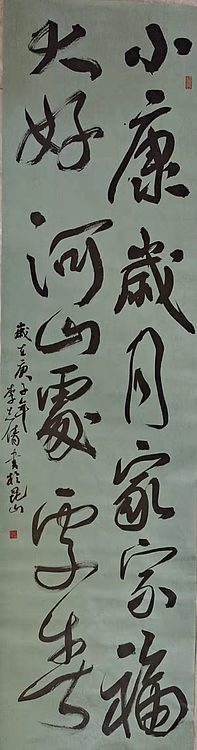 小康歲月家家福
大好河山處處春
歲在庚子年
李書於昆山